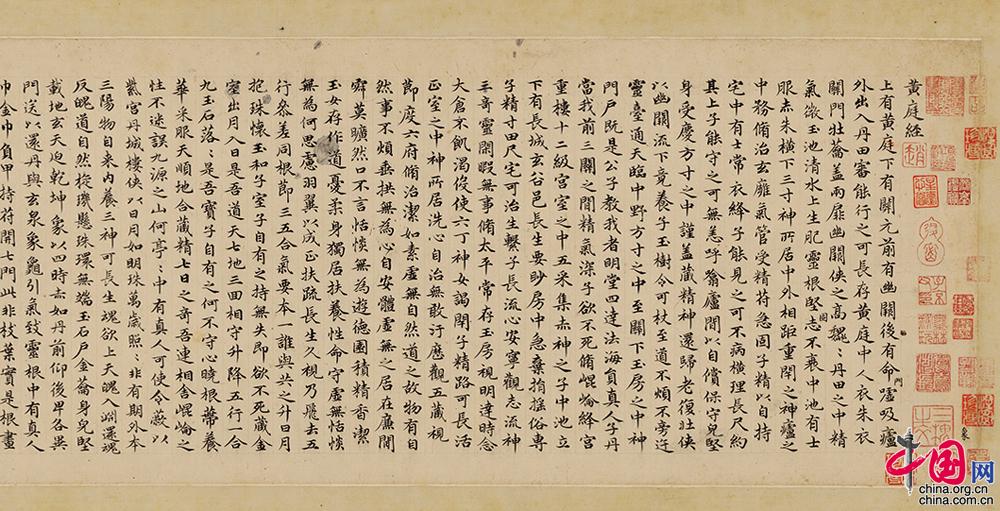 黃庭經
上有黃庭下有關元前有幽關後有命門噓吸廬
外出入丹田審能行之可長存黃庭中人衣朱衣
關門壯籥蓋兩扉幽關俠之高巍〻丹田之中精
氣微玉池清水上生肥靈根堅志不衰中池有士
服赤朱橫下三寸神所居中外相距重閉之神廬之
中務脩治玄膺氣管受精符急固子精以自持
宅中有士常衣絳子能見之可不病橫理長尺約
其上子能守之可無恙呼翕廬間以自償保守兒堅
身受慶方寸之中謹蓋藏精神還歸老復壯俠
以幽關流下竟養子玉樹令可杖至道不煩不旁迕
靈臺通天臨中野方寸之中至關下玉房之中神
門戶既是公子教我者明堂四達法海員真人子丹
當我前三關之間精氣深子欲不死脩崐崘絳宮
重樓十二級宮室之中五采集赤神之子中池立
下有長城玄谷邑長生要眇房中急棄捐搖俗專
子精寸田尺宅可治生繫子長流心安寧觀志流神
三奇靈閑暇無事脩太平常存玉房視明達時念
大倉不飢渴伇使六丁神女謁閉子精路可長活
正室之中神所居洗心自治無敢汙歷觀五藏視
節度六府脩治潔如素虛無自然道之故物有自
然事不煩垂拱無為心自安體虛無之居在廉間
寂莫曠然口不言恬惔無為遊德園積精香潔
玉女存作道憂柔身獨居扶養性命守虛無恬惔
無為何思慮羽翼以成正扶疏長生久視乃飛去五
行參差同根節三五合氣要本一誰與共之升日月
抱珠懷玉和子室子自有之持無失即欲不死藏金
室出月入日是吾道天七地三回相守升降五行一合
九玉石落〻是吾寶子自有之何不守心曉根蒂養
華采服天順地合藏精七日之奇吾連相舍崐崘之
性不迷誤九源之山何亭〻中有真人可使令蔽以
紫宮丹城樓俠以日月如明珠萬歲照〻非有期外本
三陽物自來內養三神可長生魂欲上天魄入淵還魂
反魄道自然璣懸珠環無端玉石戶金籥身兒堅
載地玄天迫乾坤象以四時赤如丹前仰後卑各異
門送以還丹與玄泉象龜引氣致靈根中有真人
巾金巾負甲持符開七門此非枝葉實是根晝
中国网
china.org.cn
china.com.cn